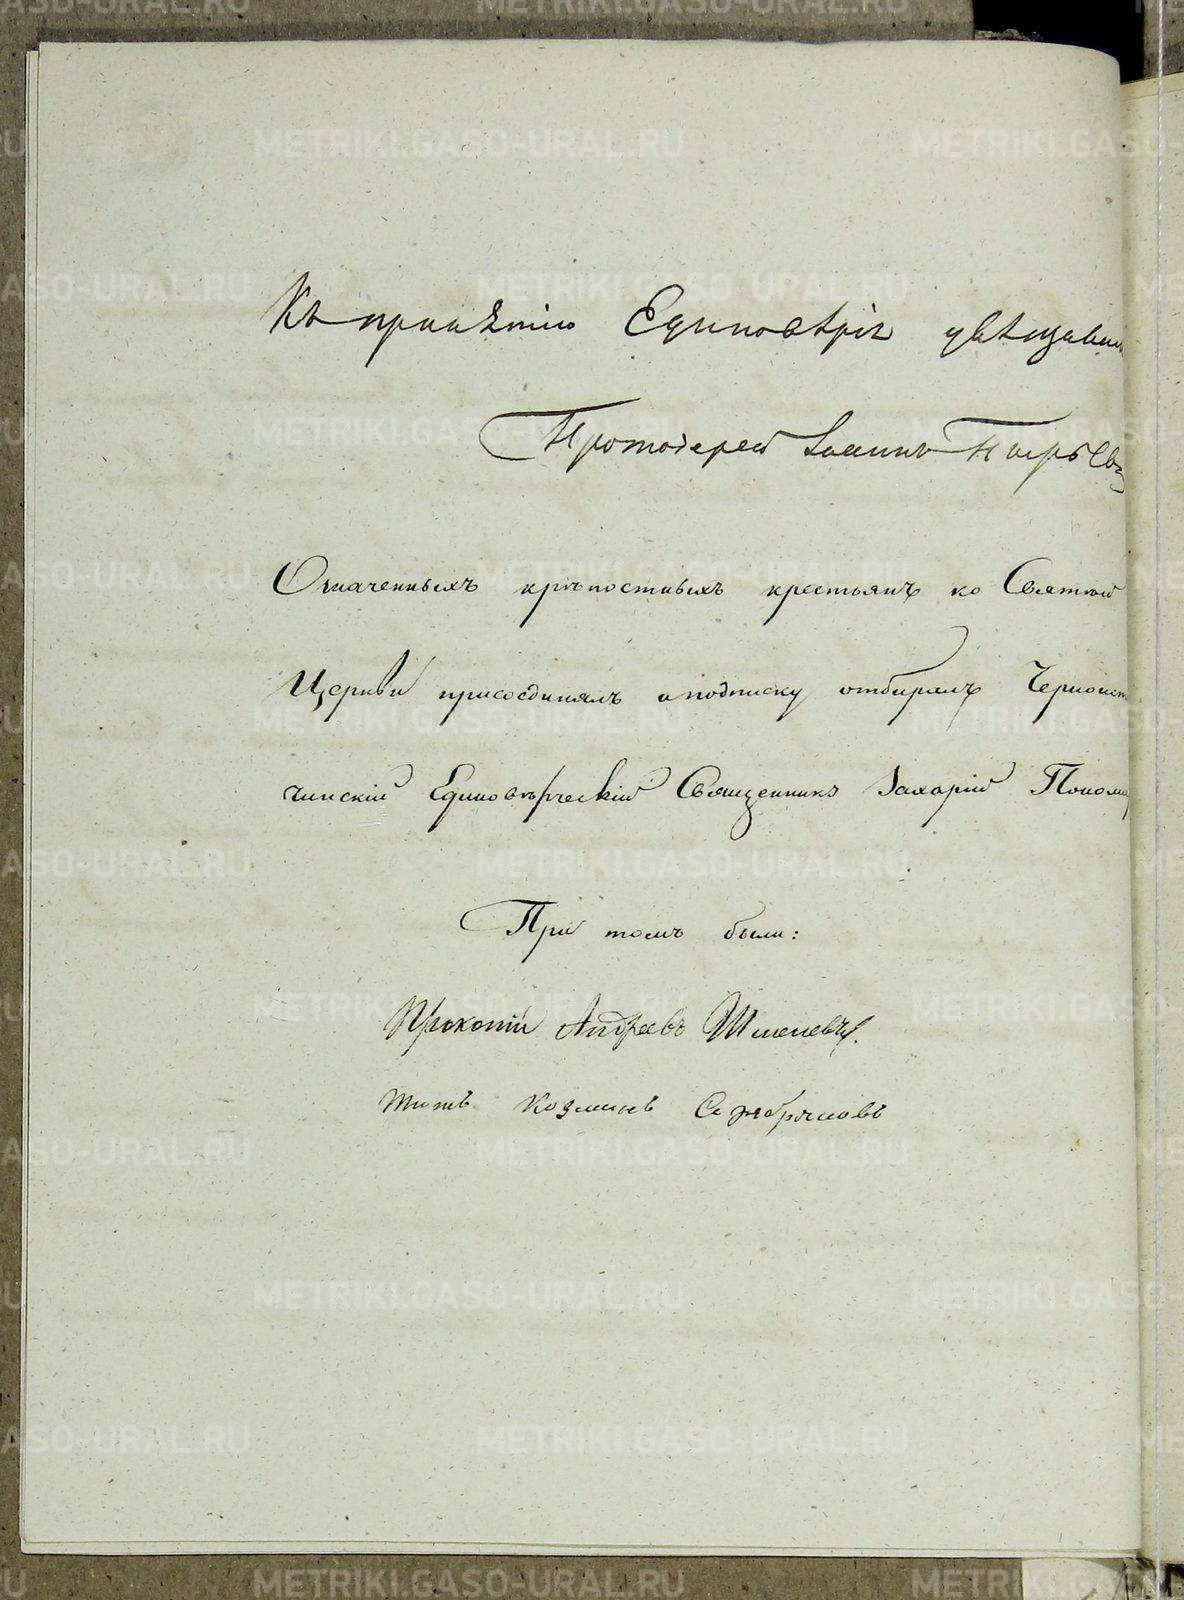 Къ принятію Единовѣрія увѣщавалъ
Протоіерей Іоаннъ
Означенныхъ крѣпостныхъ крестьянъ ко Святой
Церкви присоединялъ и подписку отбиралъ Черноист
чинскій Единовѣрческій Священникъ Захарій Понома
При томъ были:
Прокопій Андреевъ Шмелевъ.
Титъ Козминъ Серебряковъ
METRIKI.GASO-URAL.RU